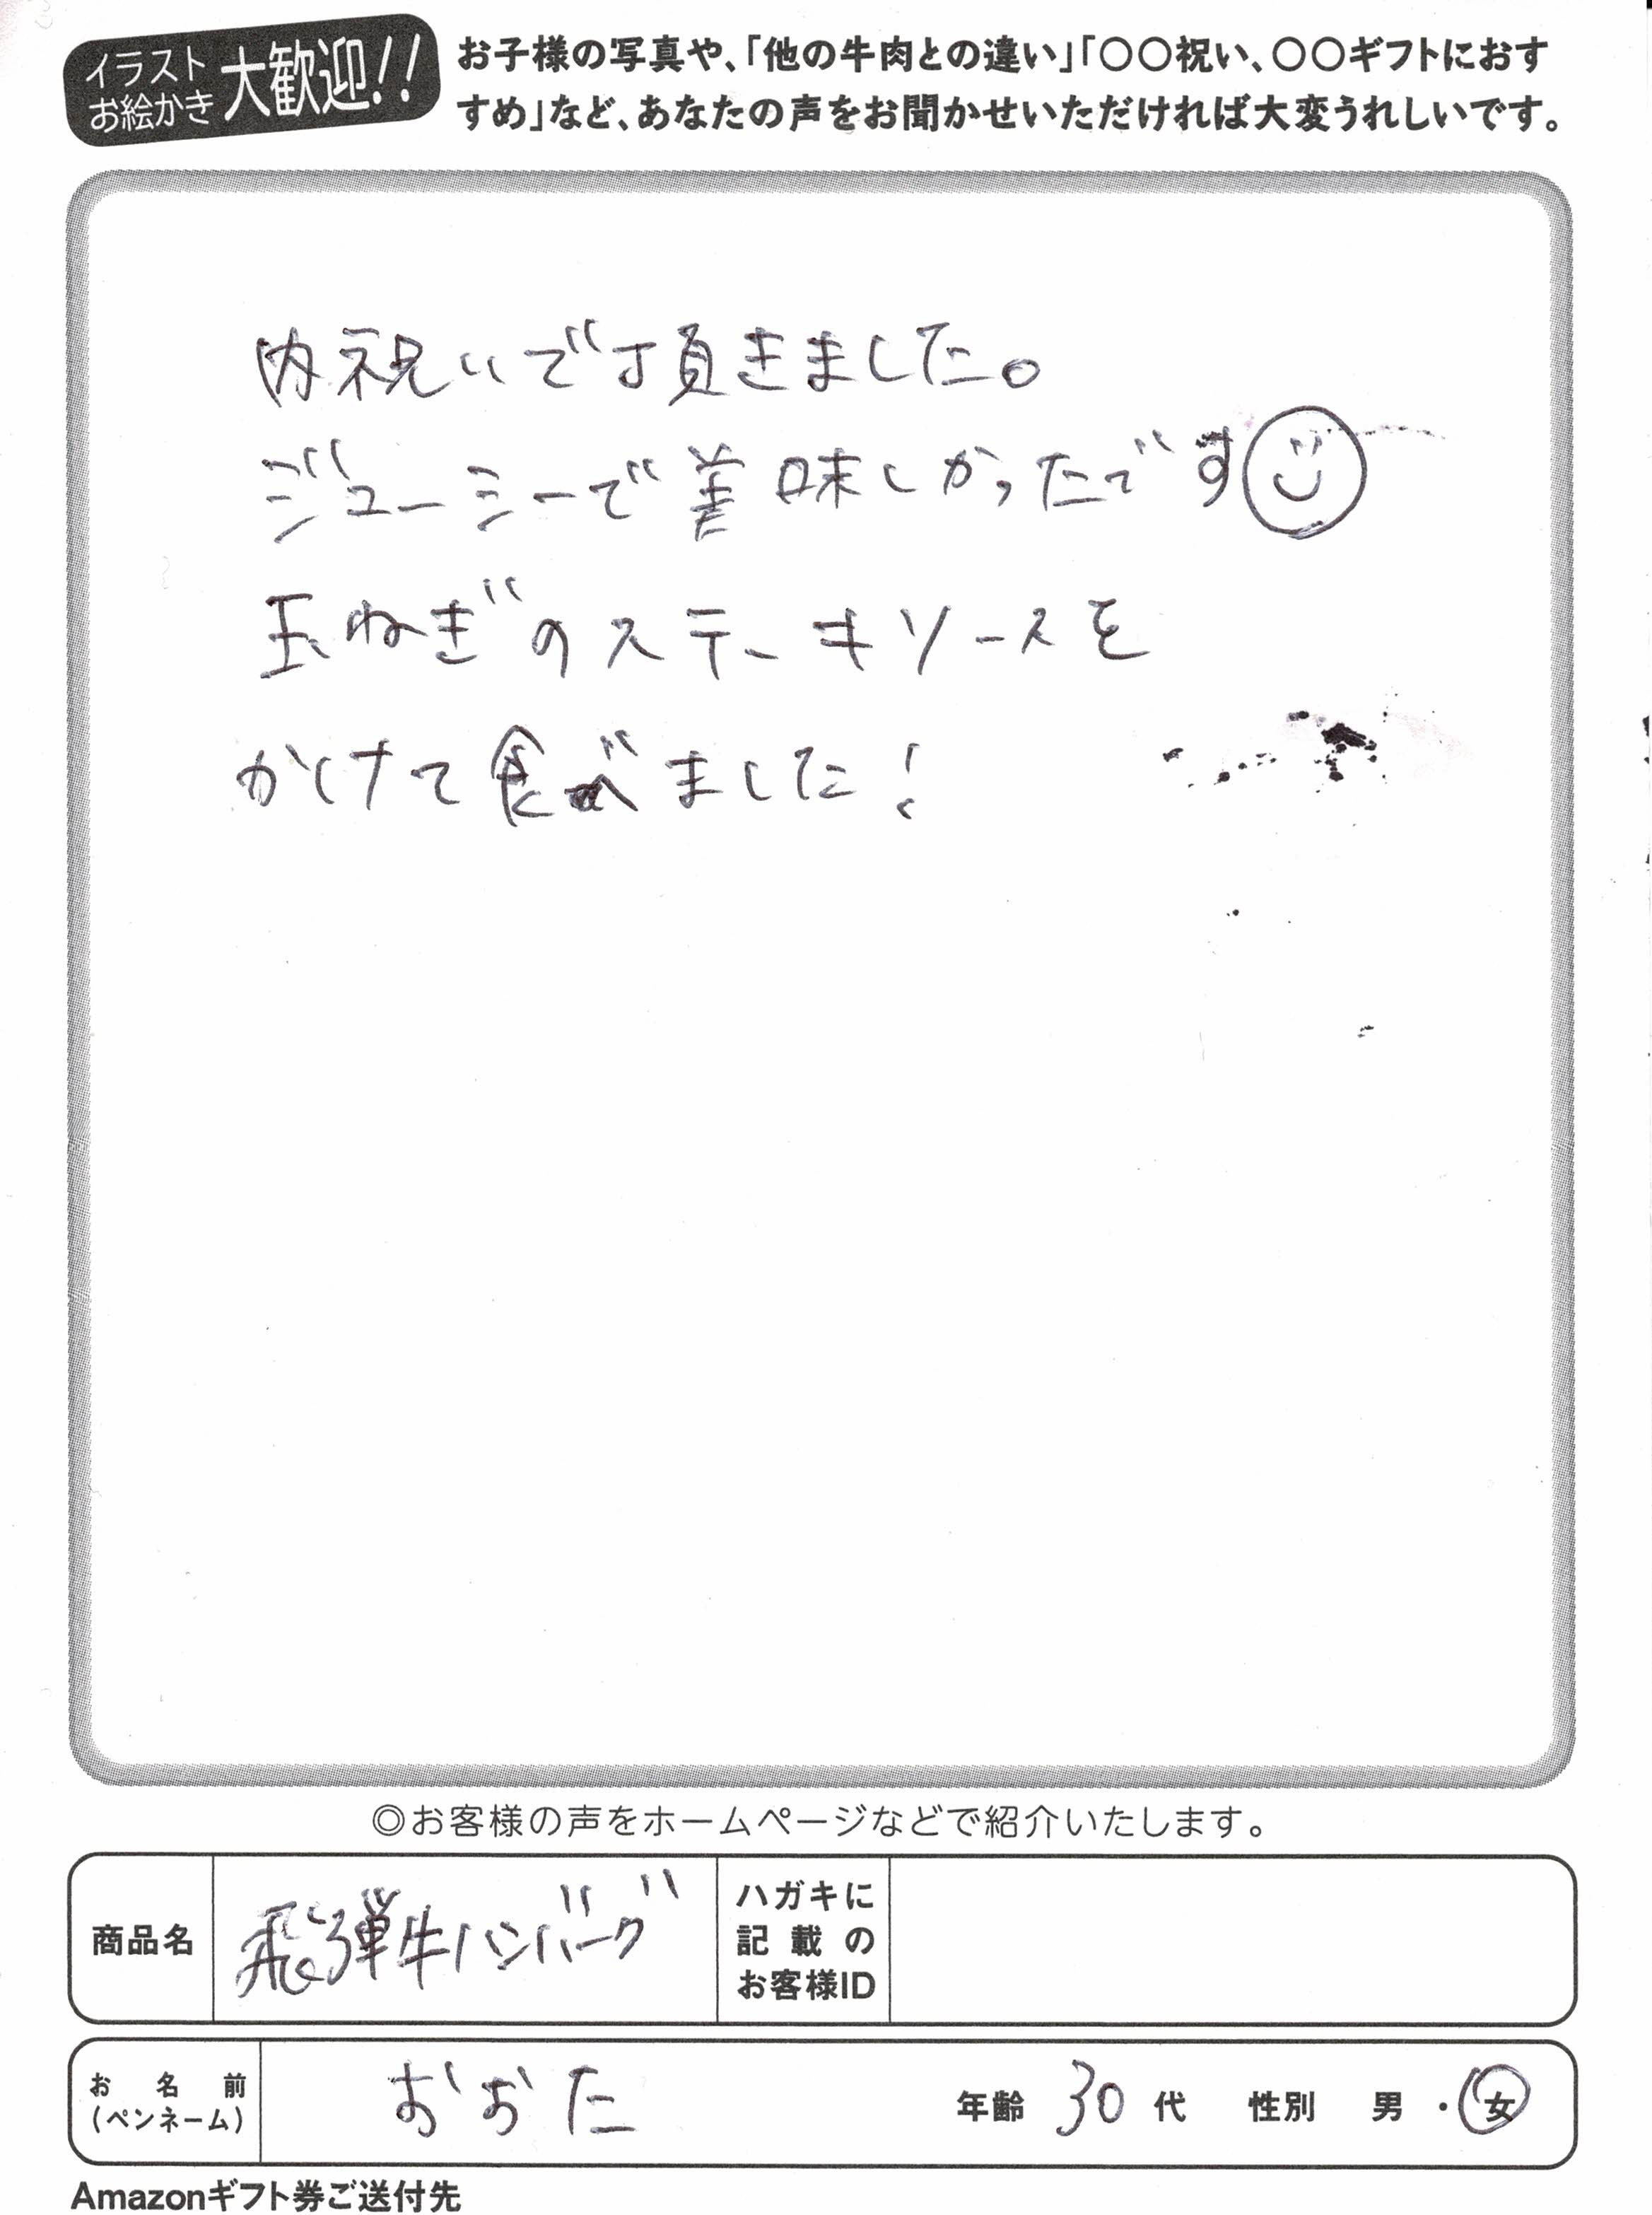 イラスト
お絵かき
大歓迎!!
お子様の写真や、「他の牛肉との違い」「〇〇祝い、〇〇ギフトにおす
すめ」など、あなたの声をお聞かせいただければ大変うれしいです。
内祝いで頂きました。
ジューシーで美味しかったです
玉ねぎのステーキソースを
かけて食べました!
◎お客様の声をホームページなどで紹介いたします。
商品名 飛騨牛ハンバーグ
ハガキに
記載の
お客様ID
お名前
(ペンネーム)
おおた 年齢 30代 性別 男・女
Amazonギフト券ご送付先